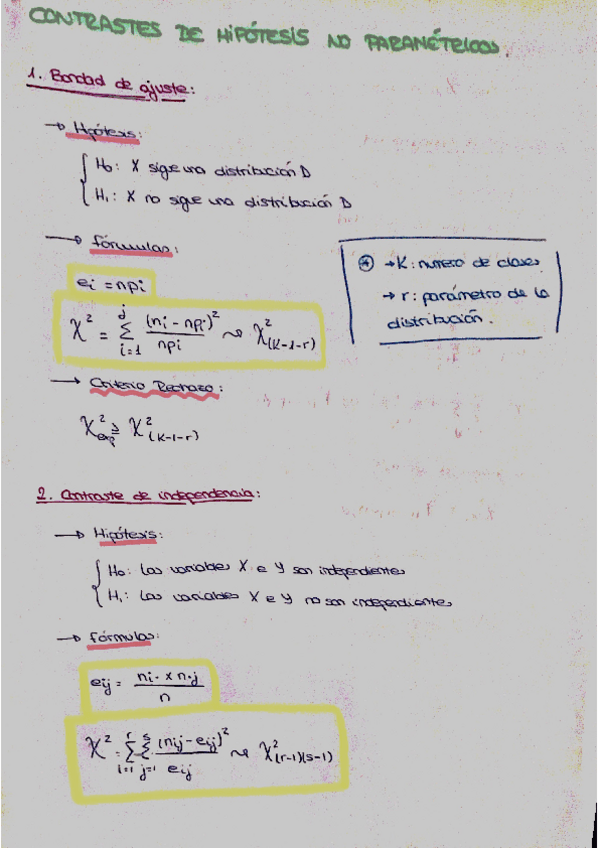 CONTRASTES DE HIPÓTESIS NO PARAMÉTRICOS.
1. Bondad de ajuste:
→ Hipótesis:
H₀: X sigue una distribución D
H₁: X no sigue una distribución D
→ fórmulas:
eᵢ = npᵢ
χ² = Σ_{i=1}^{j} (nᵢ - npᵢ)² / npᵢ ~ χ²_(K-1-r)
⊛ → K: numero de clases
→ r: parámetro de la
distribución.
→ Criterio Rechazo:
χ²_exp ≥ χ²_(K-1-r)
2. Contraste de independencia:
→ Hipótesis:
H₀: Las variables X e Y son independientes
H₁: Las variables X e Y no son independientes
→ fórmulas:
eᵢⱼ = nᵢ. x n.ⱼ / n
χ² = Σ_{i=1}^{r} Σ_{j=1}^{s} (nᵢⱼ - eᵢⱼ)² / eᵢⱼ ~ χ²_(r-1)(s-1)